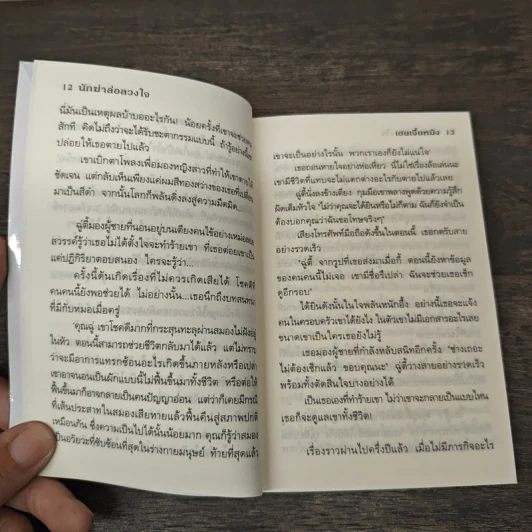 12 นักฆ่าล่อลวงใจ
นี่มันเป็นเหตุผลบ้าบออะไรกัน! น้อยครั้งที่เขาจะช่วย
สักที คิดไม่ถึงว่าจะได้รับชะตากรรมแบบนี้ ถ้ารู้อย่างนี้
ปล่อยให้เธอตายไปแล้ว
เขาเบิกตาโพลงเพื่อมองหญิงสาวที่ทำให้เขาตาย
ชัดเจน แต่กลับเห็นเพียงแค่ผมสีทองสว่างของเธอที่เปลี่ยน
มาเป็นสีดำ จากนั้นโลกก็พลันดิ่งลงสู่ความมืดมิด...
ฉู่ตี้มองผู้ชายที่นอนอยู่บนเตียงคนไข้อย่างเหม่อลอย
สวรรค์รู้ว่าเธอไม่ได้ตั้งใจจะทำร้ายเขา ที่เธอต่อยเขาเป็น
แค่ปฏิกิริยาตอบสนอง ใครจะรู้ว่า...
ครั้งนี้ดันเกิดเรื่องที่ไม่ควรเกิดเสียได้ โชคดีที่
คนคนนี้ยังพอช่วยได้ ไม่อย่างนั้น...เธอนึกถึงบทสนทนา
ที่มีกับหมอเมื่อครู่
"คุณฉู่ เขาโชคดีมากที่กระสุนทะลุผ่านสมองไม่ฝังอยู่
ในหัว ตอนนี้สามารถช่วยชีวิตกลับมาได้แล้ว แต่ไม่ทราบ
ว่าจะมีอาการแทรกซ้อนอะไรเกิดขึ้นภายหลังหรือเปล่า
เขาอาจนอนเป็นผักแบบนี้ไม่ฟื้นขึ้นมาทั้งชีวิต หรือต่อให้
ฟื้นขึ้นมาก็อาจกลายเป็นคนปัญญาอ่อน แต่ว่าก็เคยมีกรณี
ที่เส้นประสาทในสมองเสียหายแล้วฟื้นคืนสู่สภาพปกติ
เหมือนกัน ซึ่งความเป็นไปได้นั้นน้อยมาก คุณก็รู้ว่าสมอง
เป็นอวัยวะที่ซับซ้อนที่สุดในร่างกายมนุษย์ ท้ายที่สุดแล้ว
เซี่ยเหมิง 13
เขาจะเป็นอย่างไรนั้น พวกเราเองก็ยังไม่แน่ใจ"
เธอถอนหายใจอย่างห่อเหี่ยว นี่ไม่ใช่เรื่องล้อเล่นนะ
เขามีชีวิตที่แทบจะไม่แตกต่างอะไรกับตายไปแล้วเลย
ฉู่ตี้นั่งลงข้างเตียง กุมมือเขาพลางพูดด้วยความรู้สึก
ผิดเต็มหัวใจ "ไม่ว่าคุณจะได้ยินหรือไม่ก็ตาม ฉันก็ยังจำเป็น
ต้องบอกคุณว่าฉันขอโทษจริงๆ"
เสียงโทรศัพท์มือถือดังขึ้นในตอนนี้ เธอกดรับสาย
อย่างรวดเร็ว
"ฉู่ตี้ จากรูปที่เธอส่งมาเมื่อกี้ ตอนนี้ยังหาข้อมูล
ของคนคนนี้ไม่เจอ เขามีชื่อรึเปล่า ฉันจะช่วยเธอเช็ก
ดูอีกรอบ"
ได้ยินดังนั้นในใจพลันหนักอึ้ง อย่างนี้เธอจะแจ้ง
คนในครอบครัวเขาได้ยังไง ในตัวเขาไม่มีเอกสารอะไรเลย
ขนาดเขาเป็นใครเธอยังไม่รู้
เธอมองผู้ชายที่กำลังหลับสนิทอีกครั้ง "ช่างเถอะ
ไม่ต้องเช็กแล้ว ขอบคุณนะ" ฉู่ตี้วางสายอย่างรวดเร็ว
พร้อมทั้งตัดสินใจบางอย่างได้
เป็นเธอเองที่ทำร้ายเขา ไม่ว่าเขาจะกลายเป็นแบบไหน
เธอก็จะดูแลเขาทั้งชีวิต!
เรื่องราวผ่านไปครึ่งปีแล้ว เมื่อไม่มีภารกิจอะไร